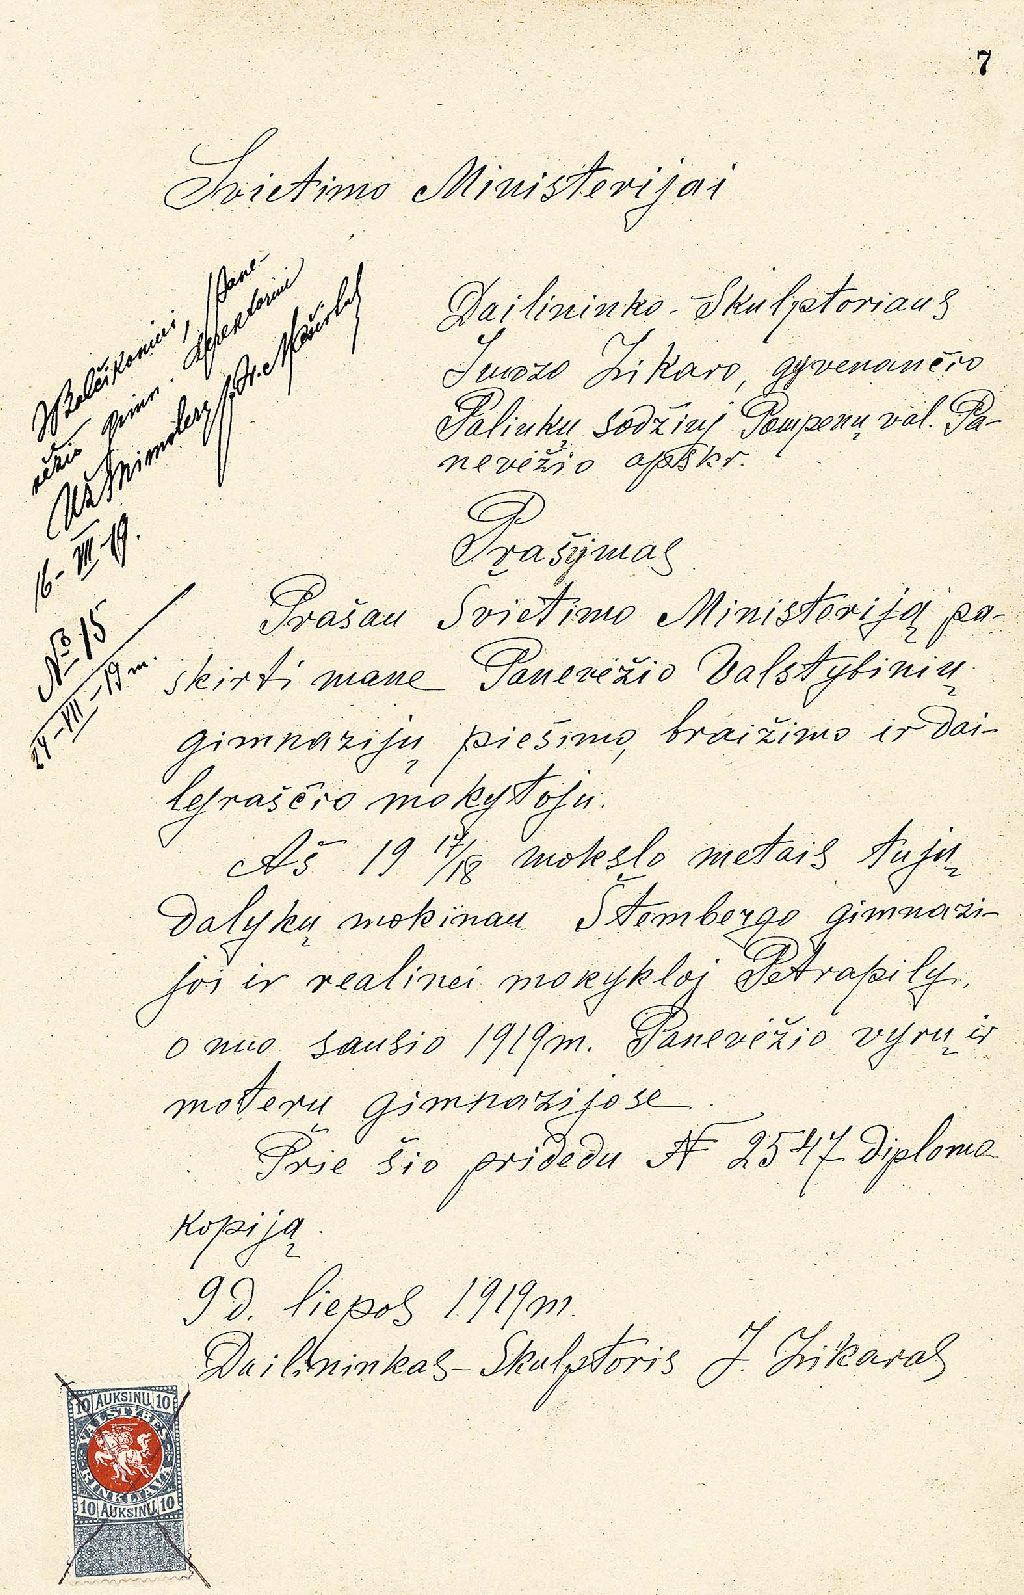 7
Švietimo Ministerijai
Dailininko-Skulptoriaus
Juozo Zikaro, gyvenančio
Paliukų sodžiuj Pompenų val. Pa-
nevėžio apskr.
Prašymas
Prašau Švietimo Ministeriją pa-
skirti mane Panevėžio Valstybinių
gimnazijų piešimo, braižimo ir dai-
lyraščio mokytoju.
Aš 19 17/18 mokslo metais tųjų
dalykų mokinau Štembergo gimnazi-
joj ir realinei mokykloj Petrapily,
o nuo sausio 1919 m. Panevėžio vyrų ir
moterų gimnazijose.
Prie šio pridedu N 2547 diploma
kopiją.
9 d. liepos 1919 m.
Dailininkas-Skulptoris J. Zikaras
J. Balčikoniui, Pane-
vėžio gimn. direktoriui
Už Ministerį
16-VII-19.
№ 15
24-VII-19 m.
10 AUKSINŲ 10
VALSTYBĖS
RINKLIAVA
10 AUKSINŲ 10